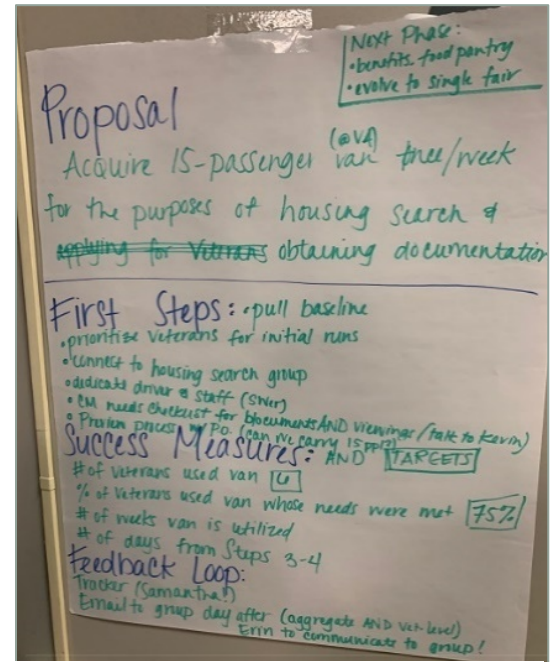 Next Phase:
• benefits, food pantry
• evolve to single fair
Proposal
(@VA)
Acquire 15-passenger van /week
for the purposes of housing search &
applying for Veterans obtaining documentation
First Steps: • pull baseline
• prioritize veterans for initial runs
• connect to housing search group
• dedicate driver & staff
• CM needs checklist for documents AND viewings (talk to Kevin)
• process PO. (can we carry 15 ppl?)
Success Measures: AND TARGETS
# of veterans used van 6
% of veterans used van whose needs were met 75%
# of weeks van is utilized
# of days from Steps 3-4
Feedback Loop:
Tracker (Samantha!)
Email to group day after (aggregate AND vet level)
Erin to communicate to group!